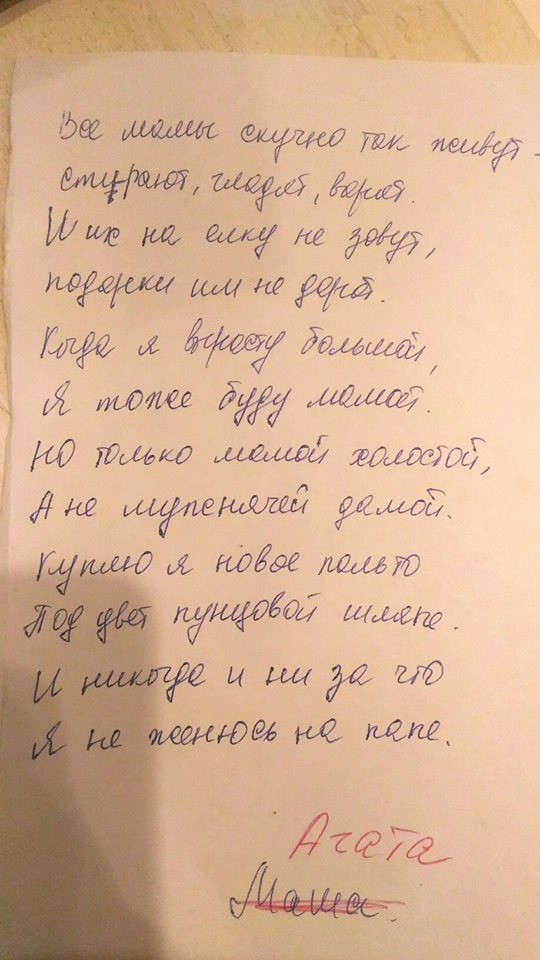 Все мамы скучно так живут -
стирают, гладят, варят.
И их на елку не зовут,
подарки им не дарят.
Когда я вырасту большой,
Я тоже буду мамой.
НО только мамой холостой,
А не мупснячей дамой.
Куплю я новое пальто
Под цвет пунцовой шляпе.
И никогда и ни за что
Я не женюсь на папе.
Агата
Маша.